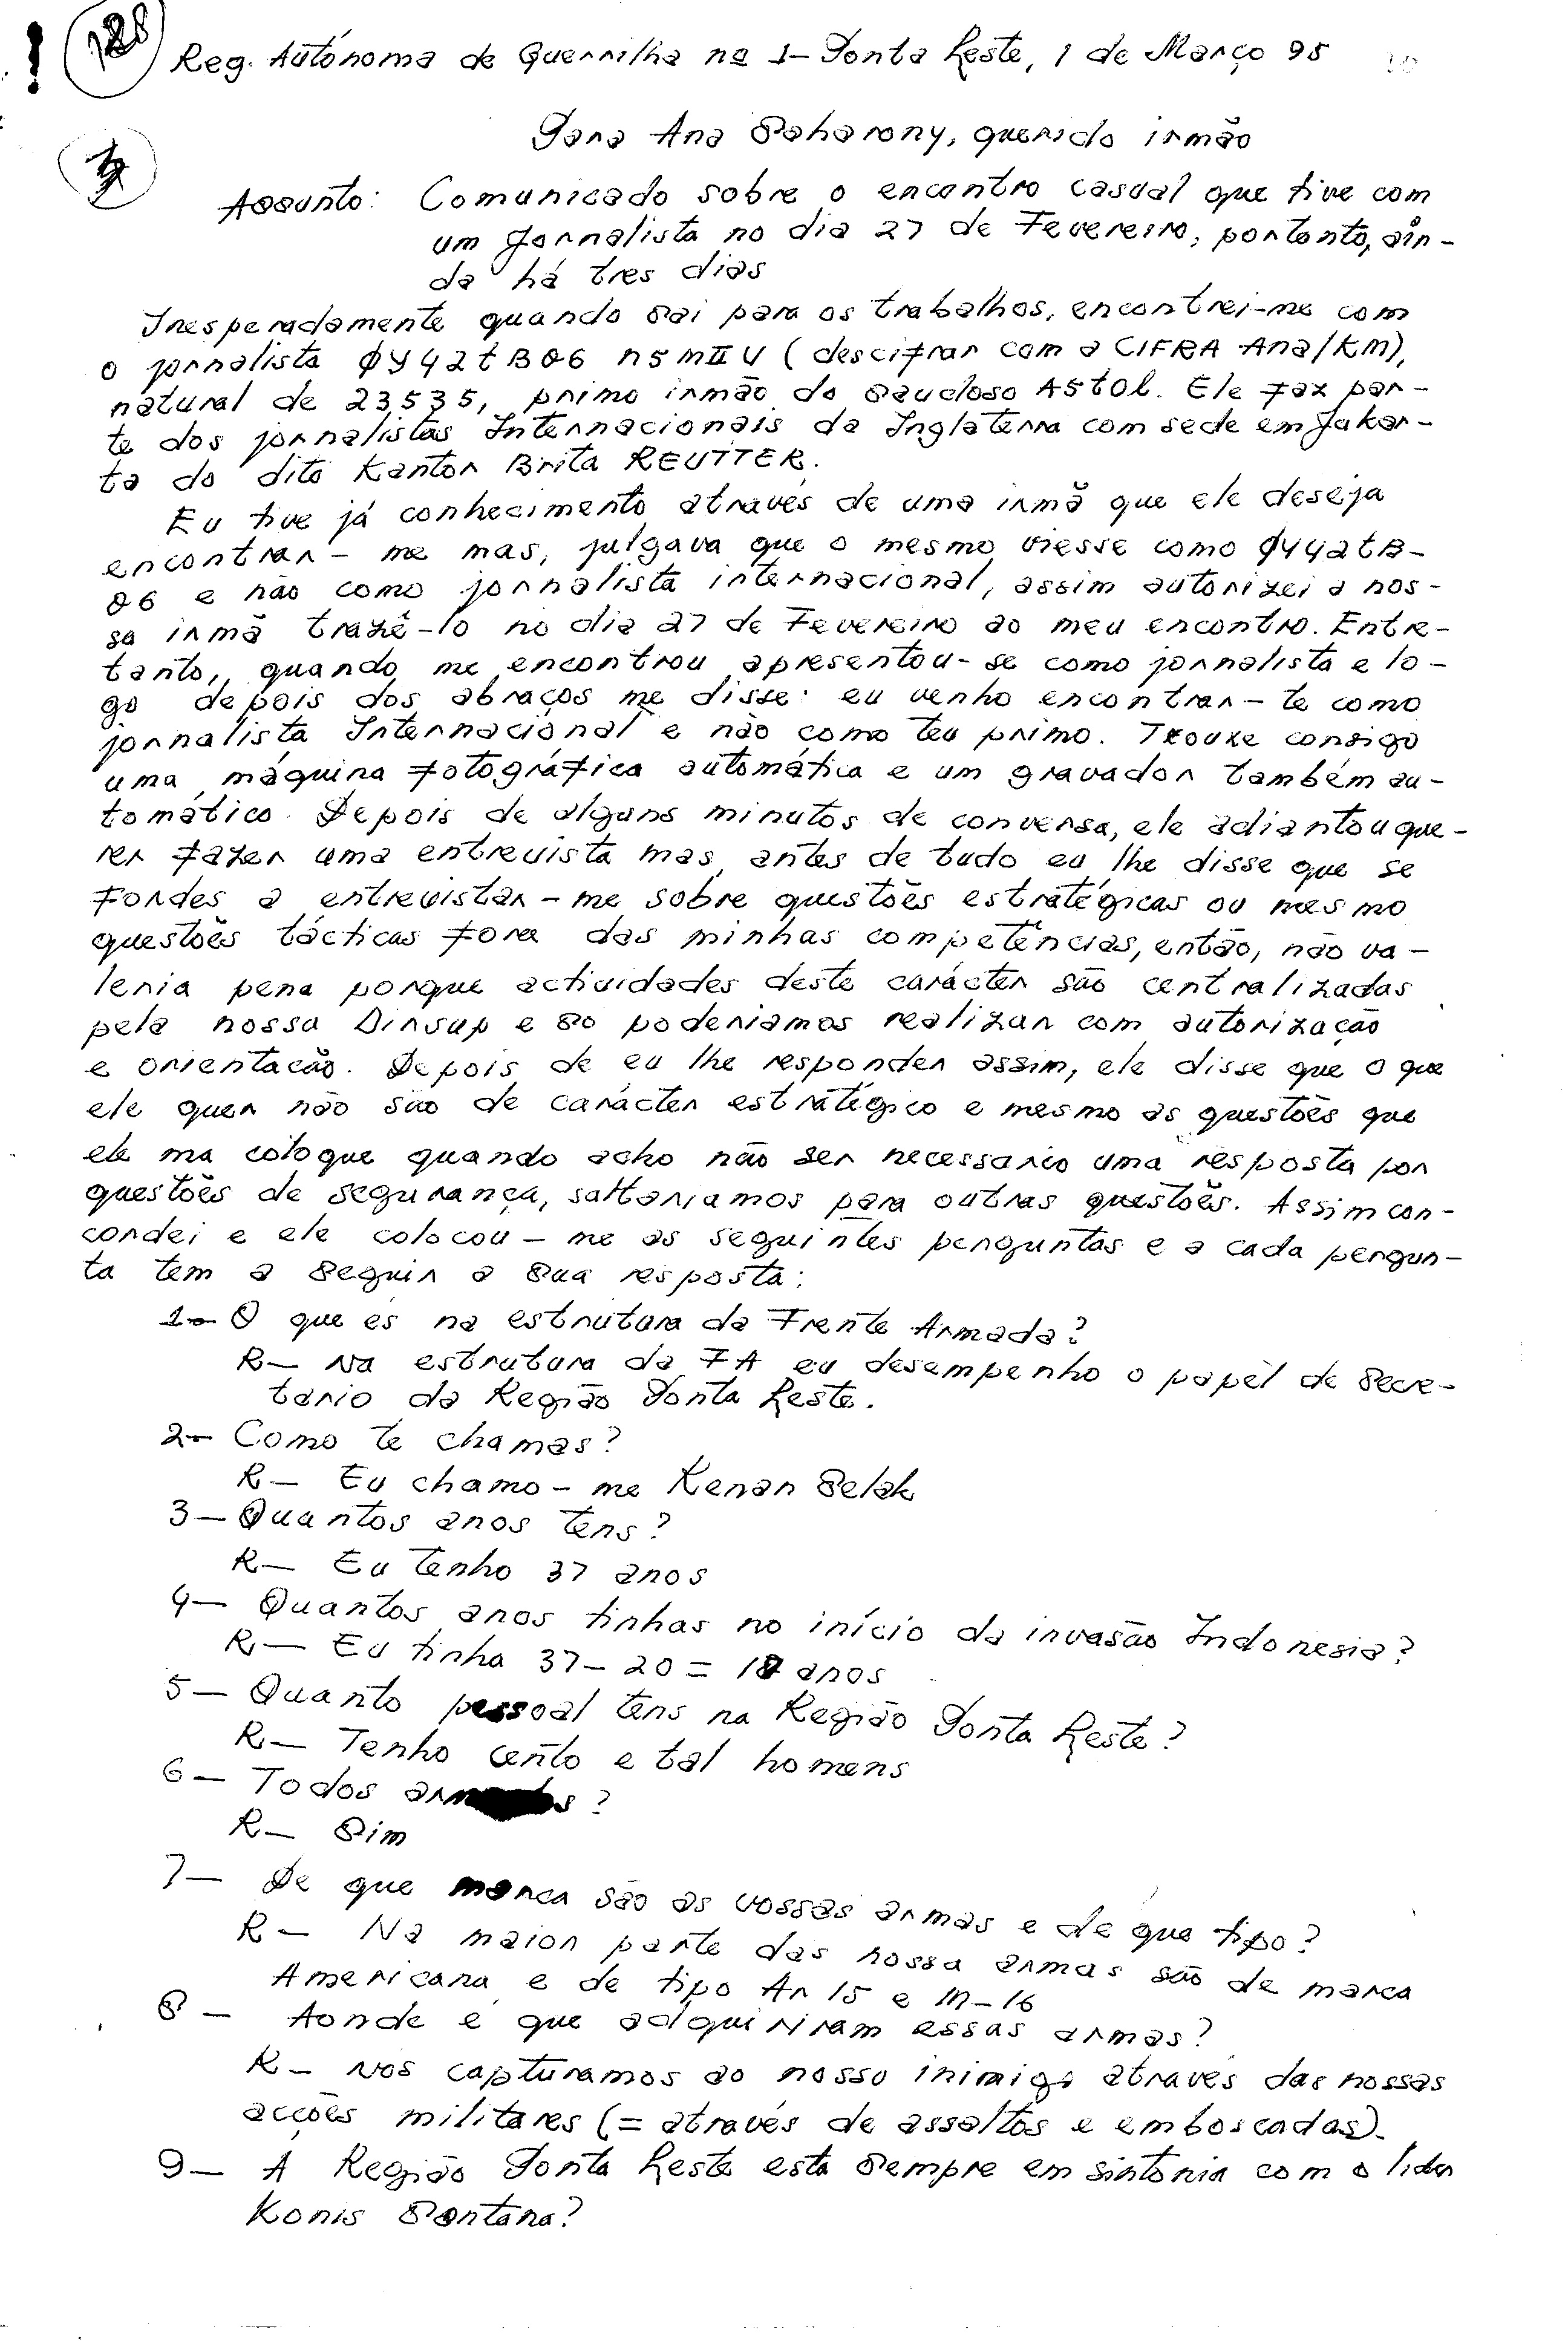 128
Reg. Autónoma de Guerrilha nº 1- Ponta Leste, 1 de Março 95
Para Ana Saharony, querido irmão
Assunto: Comunicado sobre o encontro casual que tive com
um Jornalista no dia 27 de Fevereiro, portanto, ain-
da há tres dias
Inesperadamente quando sai para os trabalhos, encontrei-me com
o jornalista ф442tBθ6 n5mIIU (descifrar com a CIFRA Ana/KM),
natural de 23535, primo irmão do saudoso AStOl. Ele faz par-
te dos jornalistas Internacionais da Inglaterra com sede em Jakar-
ta do dito Kantor Brita REUTTER.
Eu tive já conhecimento através de uma irmã que ele deseja
encontrar-me mas, julgava que o mesmo viesse como ф442tB-
θ6 e não como jornalista internacional, assim autorizei a nos-
sa irmã trazê-lo no dia 27 de Fevereiro ao meu encontro. Entre-
tanto, quando me encontrou apresentou-se como jornalista e lo-
go depois dos abraços me disse: eu venho encontrar-te como
jornalista Internacional e não como teu primo. Trouxe consigo
uma máquina fotográfica automática e um gravador também au-
tomático. Depois de alguns minutos de conversa, ele adiantou que-
rer fazer uma entrevista mas, antes de tudo eu lhe disse que se
fordes a entrevistar-me sobre questões estratégicas ou mesmo
questões tácticas fora das minhas competências, então, não va-
leria pena porque actividades deste carácter são centralizadas
pela nossa Dirsup e so poderiamos realizar com autorização
e orientacão. Depois de eu lhe responder assim, ele disse que o que
ele quer não são de carácter estratégico e mesmo as questões que
ele ma coloque quando acho não ser necessario uma resposta por
questões de segurança, saltariamos para outras questões. Assim con-
cordei e ele colocou-me as seguintes perguntas e a cada pergun-
ta tem a seguir a sua resposta:
1- O que és na estrutura da Frente Armada?
R- Na estrutura da FA eu desempenho o papel de Secre-
tario da Região Ponta Leste.
2- Como te chamas?
R- Eu chamo-me Renan Selak
3- Quantos anos tens?
R- Eu tenho 37 anos
4- Quantos anos tinhas no início da invasão Indonesia?
R- Eu tinha 37-20= 17 anos
5- Quanto pessoal tens na Região Ponta Leste?
R- Tenho cento e tal homens
6- Todos armados?
R- Sim
7- De que marca são as vossas armas e de que tipo?
R- Na maior parte das nossa armas são de marca
Americana e de tipo Ar 15 e M-16
8- Aonde é que adquiriram essas armas?
R- Nos capturamos ao nosso inimigo através das nossas
acções militares (= através de assaltos e emboscadas).
9- A Região Ponta Leste esta sempre em sintonia com o lider
Konis Santana?